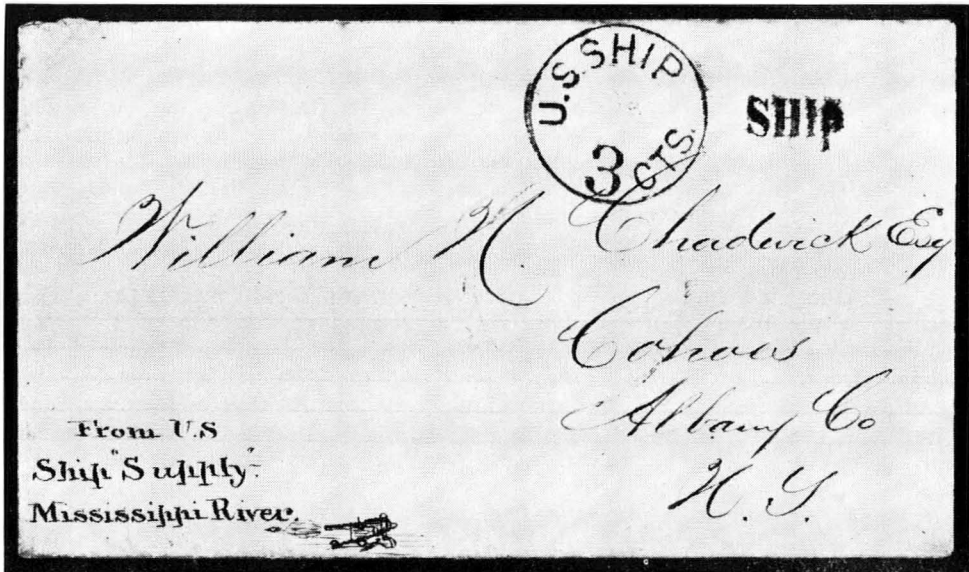 U.S. SHIP
3 CTS.
SHIP
William H. Chadwick Esq
Cohoes
Albany Co
N. Y.
From U.S
Ship "Supply".
Mississippi River.